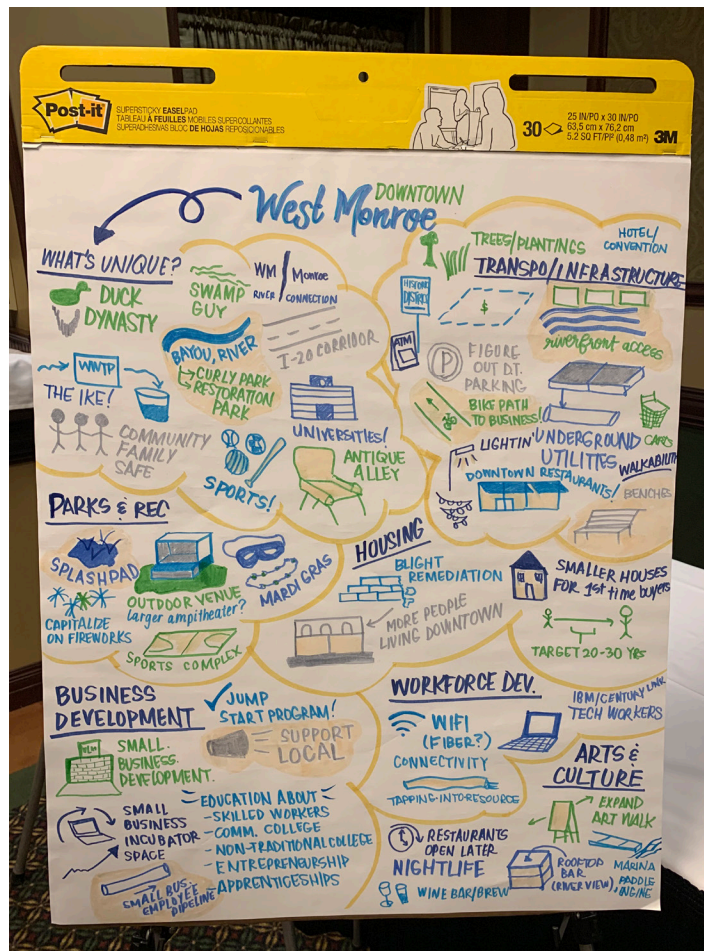 Post-it
SUPERSTICKY EASELPAD
TABLEAU À FEUILLES MOBILES SUPERCOLLANTES
SUPERADHESIVAS BLOC DE HOJAS REPOSICIONABLES
30
25 IN/PO x 30 IN/PO
63,5 cm x 76,2 cm
5.2 SQ FT/PI² (0,48 m²)
3M
West Monroe
DOWNTOWN
WHAT'S UNIQUE?
DUCK
DYNASTY
SWAMP
GUY
WM / Monroe
RIVER CONNECTION
BAYOU, RIVER
CURLY PARK
RESTORATION
PARK
I-20 CORRIDOR
WWTP
THE IKE!
COMMUNITY
FAMILY
SAFE
SPORTS!
UNIVERSITIES!
ANTIQUE
ALLEY
TREES/PLANTINGS
HOTEL/
CONVENTION
TRANSPO/INFRASTRUCTURE
HISTORIC
DISTRICT
$
riverfront access
ATM
P
FIGURE
OUT DT.
PARKING
BIKE PATH
TO BUSINESS!
LIGHTIN'
UNDERGROUND
UTILITES
CARTS
WALKABILITY
DOWNTOWN RESTAURANTS!
BENCHES
PARKS & REC
SPLASHPAD
CAPITALIZE
ON FIREWORKS
OUTDOOR VENUE
larger ampitheater?
SPORTS COMPLEX
MARDI GRAS
HOUSING
BLIGHT
REMEDIATION
MORE PEOPLE
LIVING DOWNTOWN
SMALLER HOUSES
FOR 1st time buyers
TARGET 20-30 YRS
BUSINESS
DEVELOPMENT
JUMP
START PROGRAM!
SMALL.
BUSINESS.
DEVELOPMENT.
SUPPORT
LOCAL
SMALL
BUSINESS
INCUBATOR
SPACE
SMALL BUS.
EMPLOYEE
PIPELINE
EDUCATION ABOUT
-SKILLED WORKERS
-COMM. COLLEGE
-NON-TRADITIONAL COLLEGE
-ENTREPRENEURSHIP
-APPRENTICESHIPS
WORKFORCE DEV.
WIFI
(FIBER?)
CONNECTIVITY
TAPPING INTO RESOURCE
IBM/CENTURY LINK
TECH WORKERS
ARTS &
CULTURE
EXPAND
ART WALK
RESTAURANTS
OPEN LATER
NIGHTLIFE
WINE BAR/BREW
ROOFTOP
BAR
(RIVER VIEW)
MARINA
PADDLE